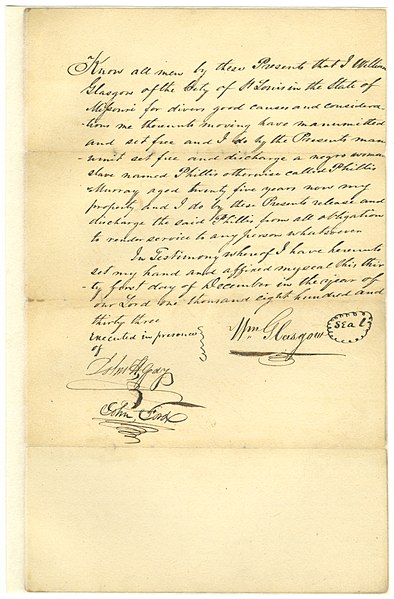 Know all men by these Presents that I William
Glasgow of the City of St Louis in the State of
Missouri for divers good causes and considera
-tions me thereunto moving have manumitted
and set free and I do by these Presents man
umit set free and discharge a negro woman
slave named Phillis otherwise called Phillis
Murray aged twenty five years now my
property and I do by these Presents release and
discharge the said Phillis from all obligation
to render service to any person whatsoever
In Testimony whereof I have hereunto
set my hand and affixed my seal this thir
-ty first day of December in the year of
our Lord one thousand eight hundred and
thirty three
executed in presence
of
Wm Glasgow
seal
John H Gay
John Ford